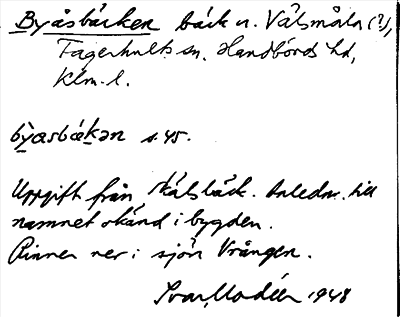 Byåsbäcken bäck n. Välsmåla (?),
Fagerhults sn. Handbörds hd,
Klm. l.
bỳasbäkən s. 45.
Uppgift från Skälsbäck. Anledn. till
namnet okänd i bygden.
Rinner ner i sjön Vrången.
Ivar Modéer 1948